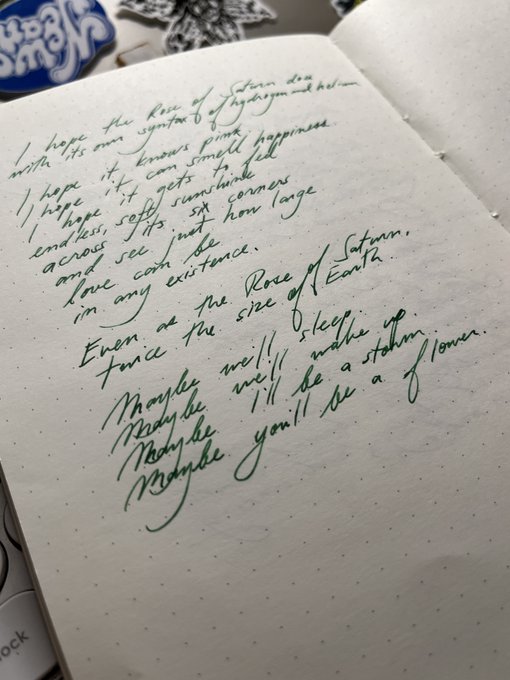 I hope the Rose of Saturn does
with its own syntax of hydrogen and helium
I hope it knows pink,
I hope it can smell happiness
I hope it gets to feel
endless, soft sunshine
across its six corners
and see just how large
love can be
in any existence.
Even as the Rose of Saturn,
twice the size of Earth.
Maybe we'll sleep,
Maybe we'll wake up
Maybe I'll be a storm
Maybe you'll be a flower.
New
ock